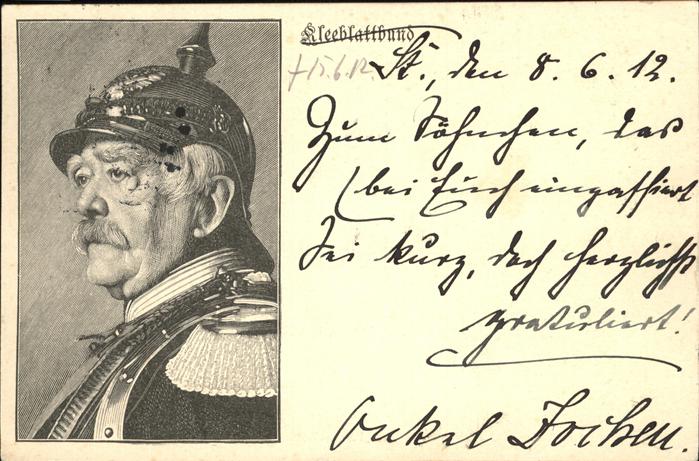 Kleeblattbund
+15.6.12.
St., den 8. 6. 12.
Zum Söhnchen, das
bei Euch eingassiert
Sei kurz, doch herzlichst
gratuliert!
Onkel Jochen.